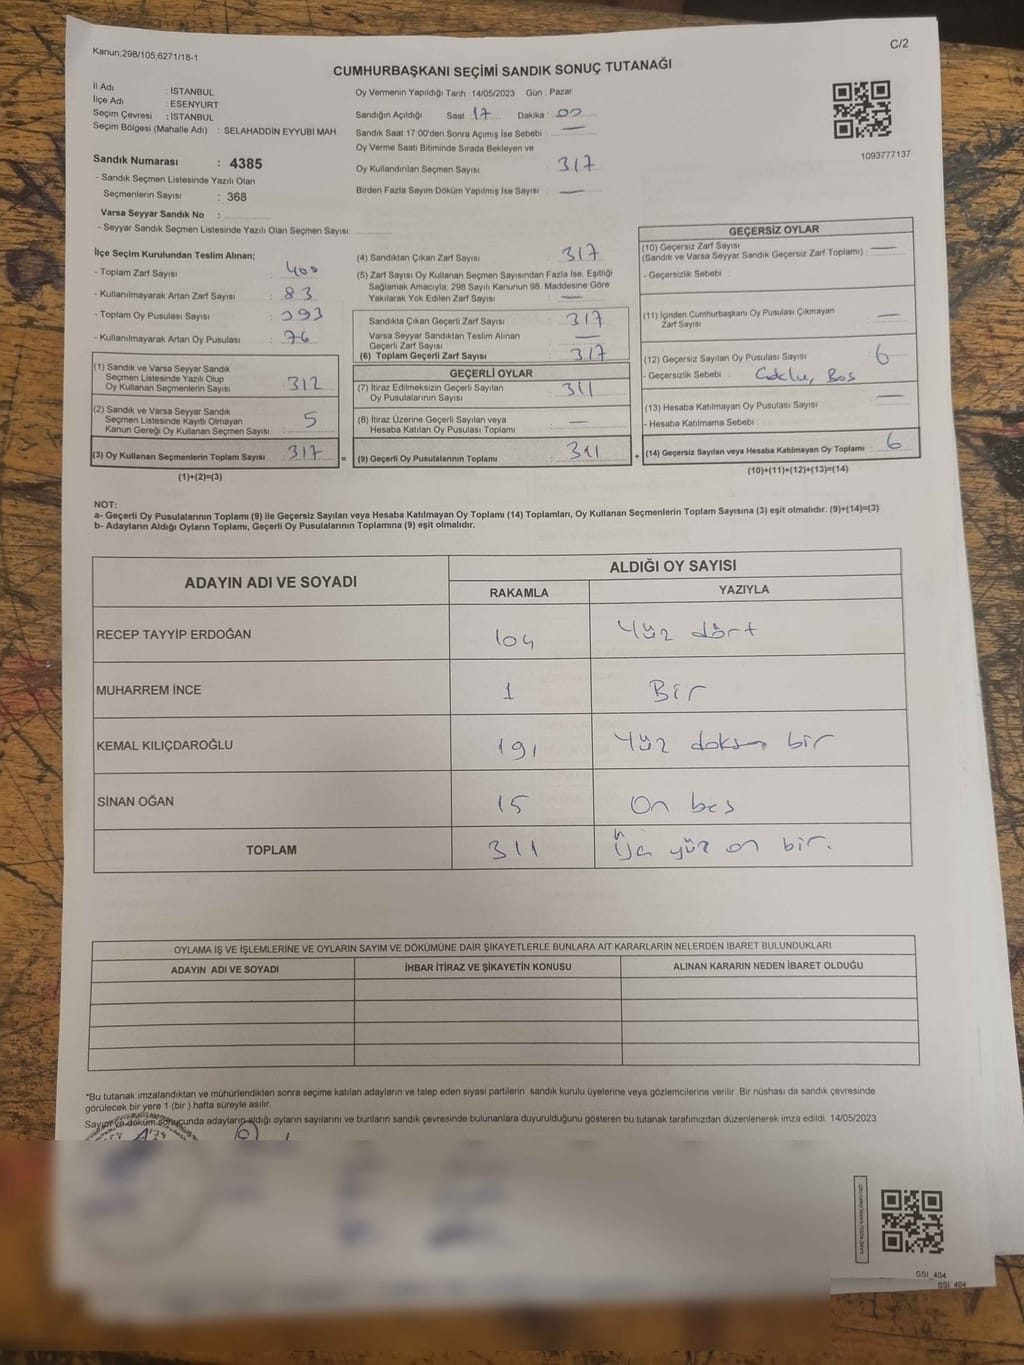 Kanun;298/105;6271/18-1
C/2
CUMHURBAŞKANI SEÇİMİ SANDIK SONUÇ TUTANAĞI
İl Adı : İSTANBUL
İlçe Adı : ESENYURT
Seçim Çevresi : İSTANBUL
Seçim Bölgesi (Mahalle Adı) : SELAHADDİN EYYUBİ MAH.
Sandık Numarası : 4385
- Sandık Seçmen Listesinde Yazılı Olan
Seçmenlerin Sayısı : 368
Varsa Seyyar Sandık No :
- Seyyar Sandık Seçmen Listesinde Yazılı Olan Seçmen Sayısı:
Oy Vermenin Yapıldığı Tarih :14/05/2023 Gün : Pazar
Sandığın Açıldığı Saat : 17 Dakika : 00
Sandık Saat 17:00'den Sonra Açımış İse Sebebi : —
Oy Verme Saati Bitiminde Sırada Bekleyen ve
Oy Kullandırılan Seçmen Sayısı : 317
Birden Fazla Sayım Döküm Yapılmış İse Sayısı : —
1093777137
İlçe Seçim Kurulundan Teslim Alınan;
- Toplam Zarf Sayısı : 400
- Kullanılmayarak Artan Zarf Sayısı : 83
- Toplam Oy Pusulası Sayısı : 393
- Kullanılmayarak Artan Oy Pusulası : 76
(1) Sandık ve Varsa Seyyar Sandık
Seçmen Listesinde Yazılı Olup
Oy Kullanan Seçmenlerin Sayısı : 312
(2) Sandık ve Varsa Seyyar Sandık
Seçmen Listesinde Kayıtlı Olmayan
Kanun Gereği Oy Kullanan Seçmen Sayısı : 5
(3) Oy Kullanan Seçmenlerin Toplam Sayısı : 317
(1)+(2)=(3)
(4) Sandıktan Çıkan Zarf Sayısı : 317
(5) Zarf Sayısı Oy Kullanan Seçmen Sayısından Fazla İse, Eşitliği
Sağlamak Amacıyla; 298 Sayılı Kanunun 98. Maddesine Göre
Yakılarak Yok Edilen Zarf Sayısı : —
Sandıkta Çıkan Geçerli Zarf Sayısı : 317
Varsa Seyyar Sandıktan Teslim Alınan
Geçerli Zarf Sayısı : —
(6) Toplam Geçerli Zarf Sayısı : 317
GEÇERLİ OYLAR
(7) İtiraz Edilmeksizin Geçerli Sayılan
Oy Pusulalarının Sayısı : 311
(8) İtiraz Üzerine Geçerli Sayılan veya
Hesaba Katılan Oy Pusulası Toplamı : —
= (9) Geçerli Oy Pusulalarının Toplamı : 311
GEÇERSİZ OYLAR
(10) Geçersiz Zarf Sayısı
(Sandık ve Varsa Seyyar Sandık Geçersiz Zarf Toplamı) : —
- Geçersizlik Sebebi :
(11) İçinden Cumhurbaşkanı Oy Pusulası Çıkmayan
Zarf Sayısı : —
(12) Geçersiz Sayılan Oy Pusulası Sayısı : 6
- Geçersizlik Sebebi : Çoklu, Boş
(13) Hesaba Katılmayan Oy Pusulası Sayısı : —
- Hesaba Katılmama Sebebi :
+ (14) Geçersiz Sayılan veya Hesaba Katılmayan Oy Toplamı : 6
(10)+(11)+(12)+(13)=(14)
NOT:
a- Geçerli Oy Pusulalarının Toplamı (9) ile Geçersiz Sayılan veya Hesaba Katılmayan Oy Toplamı (14) Toplamları, Oy Kullanan Seçmenlerin Toplam Sayısına (3) eşit olmalıdır. (9)+(14)=(3)
b- Adayların Aldığı Oyların Toplamı, Geçerli Oy Pusulalarının Toplamına (9) eşit olmalıdır.
ADAYIN ADI VE SOYADI
ALDIĞI OY SAYISI
RAKAMLA YAZIYLA
RECEP TAYYİP ERDOĞAN 104 Yüz dört
MUHARREM İNCE 1 Bir
KEMAL KILIÇDAROĞLU 191 Yüz doksan bir
SİNAN OĞAN 15 On beş
TOPLAM 311 Üç yüz on bir.
OYLAMA İŞ VE İŞLEMLERİNE VE OYLARIN SAYIM VE DÖKÜMÜNE DAİR ŞİKAYETLERLE BUNLARA AİT KARARLARIN NELERDEN İBARET BULUNDUKLARI
ADAYIN ADI VE SOYADI İHBAR İTİRAZ VE ŞİKAYETİN KONUSU ALINAN KARARIN NEDEN İBARET OLDUĞU
*Bu tutanak imzalandıktan ve mühürlendikten sonra seçime katılan adayların ve talep eden siyasi partilerin sandık kurulu üyelerine veya gözlemcilerine verilir. Bir nüshası da sandık çevresinde
görülecek bir yere 1 (bir ) hafta süreyle asılır.
Sayım ve döküm sonucunda adayların aldığı oyların sayılarını ve bunların sandık çevresinde bulunanlara duyurulduğunu gösteren bu tutanak tarafımızdan düzenlenerek imza edildi. 14/05/2023
SSI_404
SSI_404